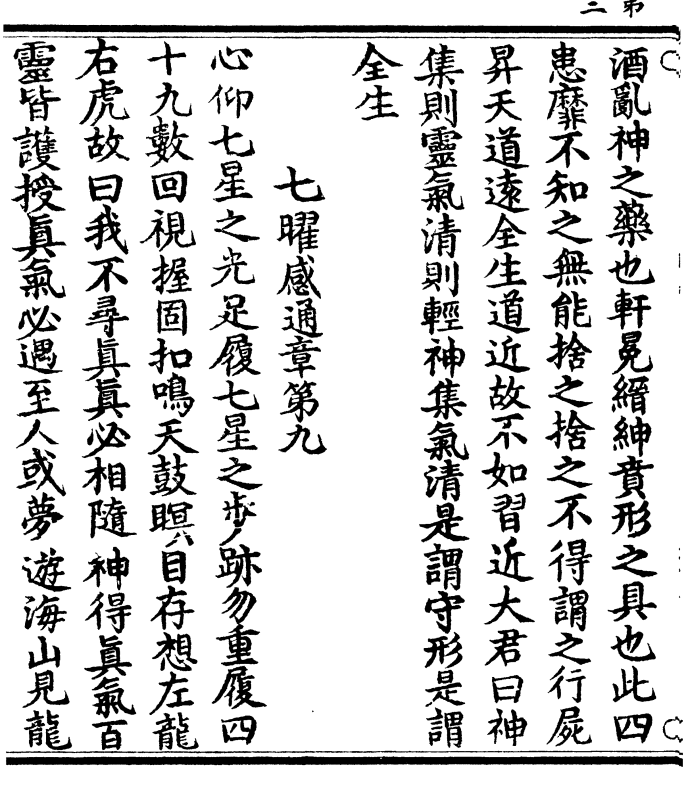 第二
酒亂神之藥也軒冕縉紳賁形之具也此四
患靡不知之無能捨之捨之不得謂之行屍
昇天道遠全生道近故不如習近大君曰神
集則靈氣清則輕神集氣清是謂守形是謂
全生
七曜感通章第九
心仰七星之光足履七星之步跡勿重履四
十九數回視握固扣鳴天鼓瞑目存想左龍
右虎故曰我不尋眞眞必相隨神得眞氣百
靈皆護授眞氣必遇至人或夢遊海山見龍